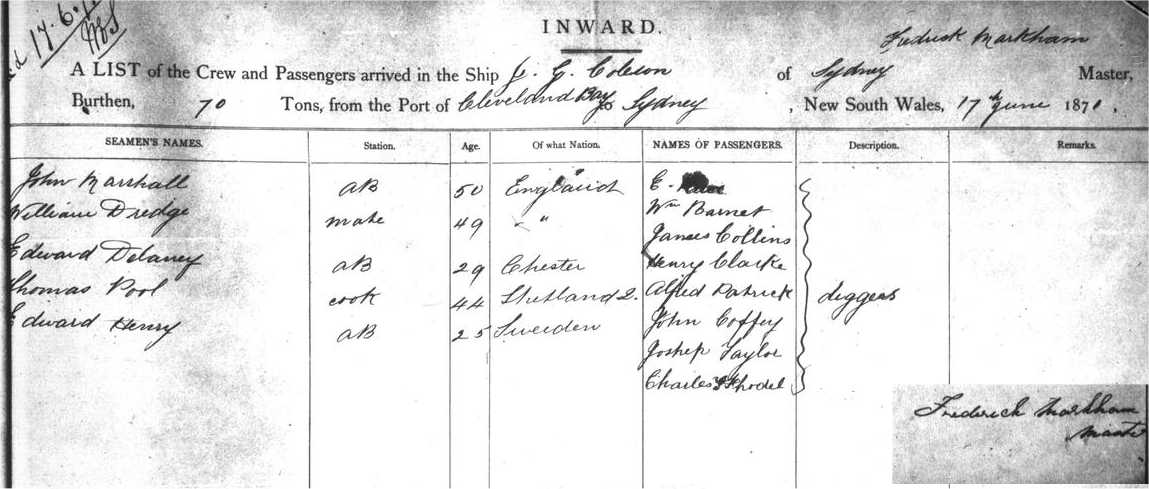 17.6.
INWARD.
Fredrick Markham
A LIST of the Crew and Passengers arrived in the Ship J. G. Coleson of Sydney Master,
Burthen, 70 Tons, from the Port of Cleveland Bay to Sydney, New South Wales, 17th June 1871.
SEAMEN'S NAMES. Station. Age. Of what Nation. NAMES OF PASSENGERS. Description. Remarks.
John Marshall AB 50 England E.
William Dredge mate 49 " Wm Barnet
James Collins
Edward Delaney AB 29 Chester Henry Clarke
Thomas Pool cook 44 Shetland Alfred Patrick diggers
Edward Henry AB 25 Sweeden John Coffey
Joshep Taylor
Charles
Frederick Markham
Master